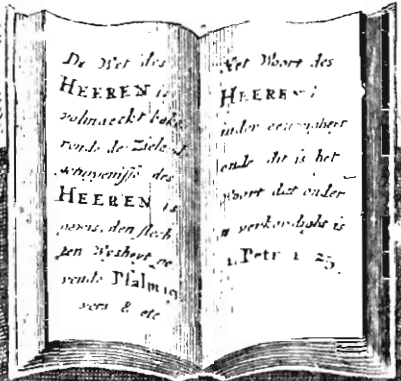 De Wet des
HEEREN is
volmaeckt beke
rende de Ziele
getuygenisse des
HEEREN is
gewis, den slech
ten Wysheyt ge
vende Psalm 19
vers 8 etc
Het Woort des
HEEREN
in der eeuwigheyt
ende dit is het
Woort dat onder
u verkondight is
1. Petr 1 25.